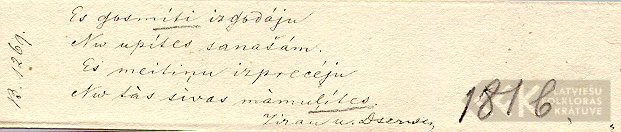 Es gosmiti izgodāju
No upītes sanašám.
Es meitiņu izprecēju
No tās sīvas māmulītes.
1816
B. 1269.
LATVIEŠU
FOLKLORAS
KRĀTUVE